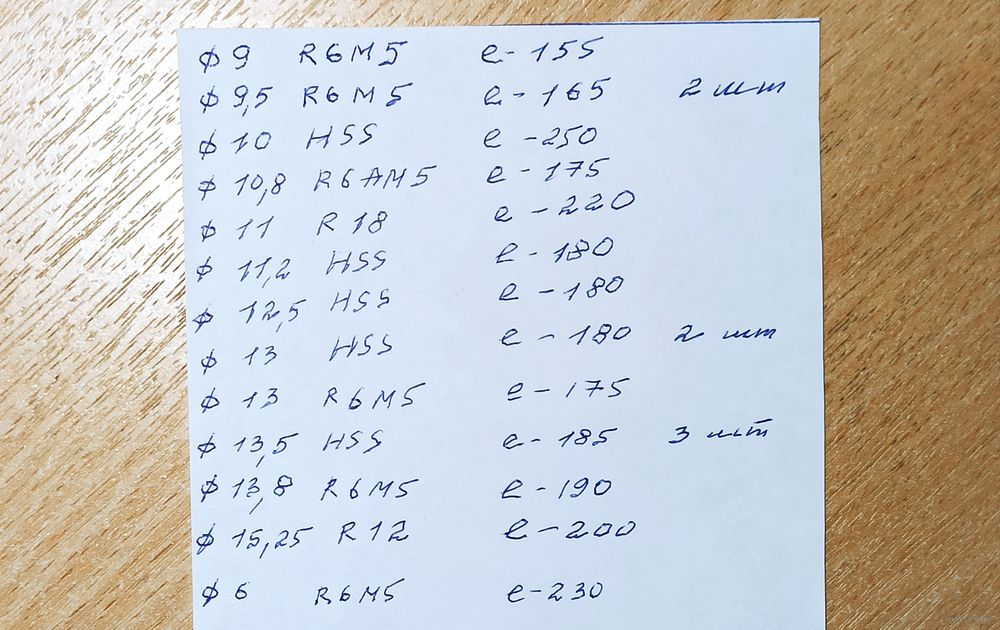 ϕ 9 R6M5 e-155
ϕ 9,5 R6M5 e-165 2 шт
ϕ 10 HSS e-250
ϕ 10,8 R6AM5 e-175
ϕ 11 R18 e-220
ϕ 11,2 HSS e-180
ϕ 12,5 HSS e-180
ϕ 13 HSS e-180 2 шт
ϕ 13 R6M5 e-175
ϕ 13,5 HSS e-185 3 шт
ϕ 13,8 R6M5 e-190
ϕ 15,25 R12 e-200
ϕ 6 R6M5 e-230